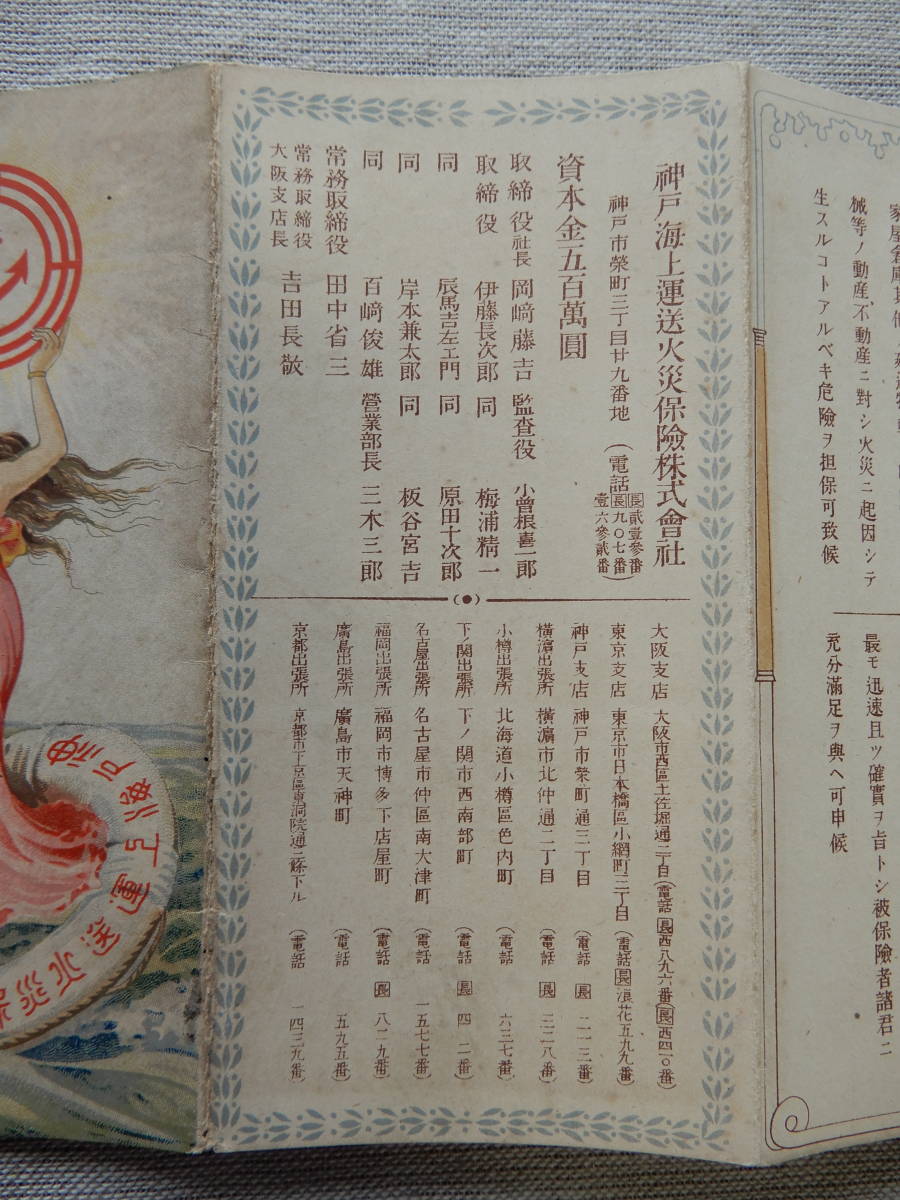 家屋倉庫其他
械等ノ動産、不動産ニ對シ火災ニ起因シテ
生スルコトアルベキ危險ヲ担保可致候
最モ迅速且ツ確實ヲ旨トシ被保險者諸君ニ
充分滿足ヲ與ヘ可申候
神戸海上運送火災保險株式會社
神戸市榮町三丁目廿九番地
(電話 長貳壹參番
長九〇七番
壹六參貳番)
資本金五百萬圓
取締役社長 岡﨑藤吉 監査役 小曾根喜一郎
取締役 伊藤長次郎 同 梅浦精一
同 辰馬吉左エ門 同 原田十次郎
同 岸本兼太郎 同 板谷宮吉
同 百﨑俊雄 營業部長 三木三郎
常務取締役 田中省三
常務取締役
大阪支店長 吉田長敬
大阪支店 大阪市西區土佐堀通二丁目(電話長西八九六番)(長西四一〇番)
東京支店 東京市日本橋區小網町三丁目(電話長浪花五九九番)
神戸支店 神戸市榮町通三丁目 (電話 長 二一三番)
橫濱出張所 橫濱市北仲通二丁目 (電話 長 三二八番)
小樽出張所 北海道小樽區色内町 (電話 六三七番)
下ノ關出張所 下ノ關市西南部町 (電話 長 四二番)
名古屋出張所 名古屋市仲區南大津町 (電話 一五七七番)
福岡出張所 福岡市博多下店屋町 (電話 長 八二九番)
廣島出張所 廣島市天神町 (電話 五九五番)
京都出張所 京都市下京區東洞院通二條下ル (電話 一四三九番)
神戸海上運送火災保